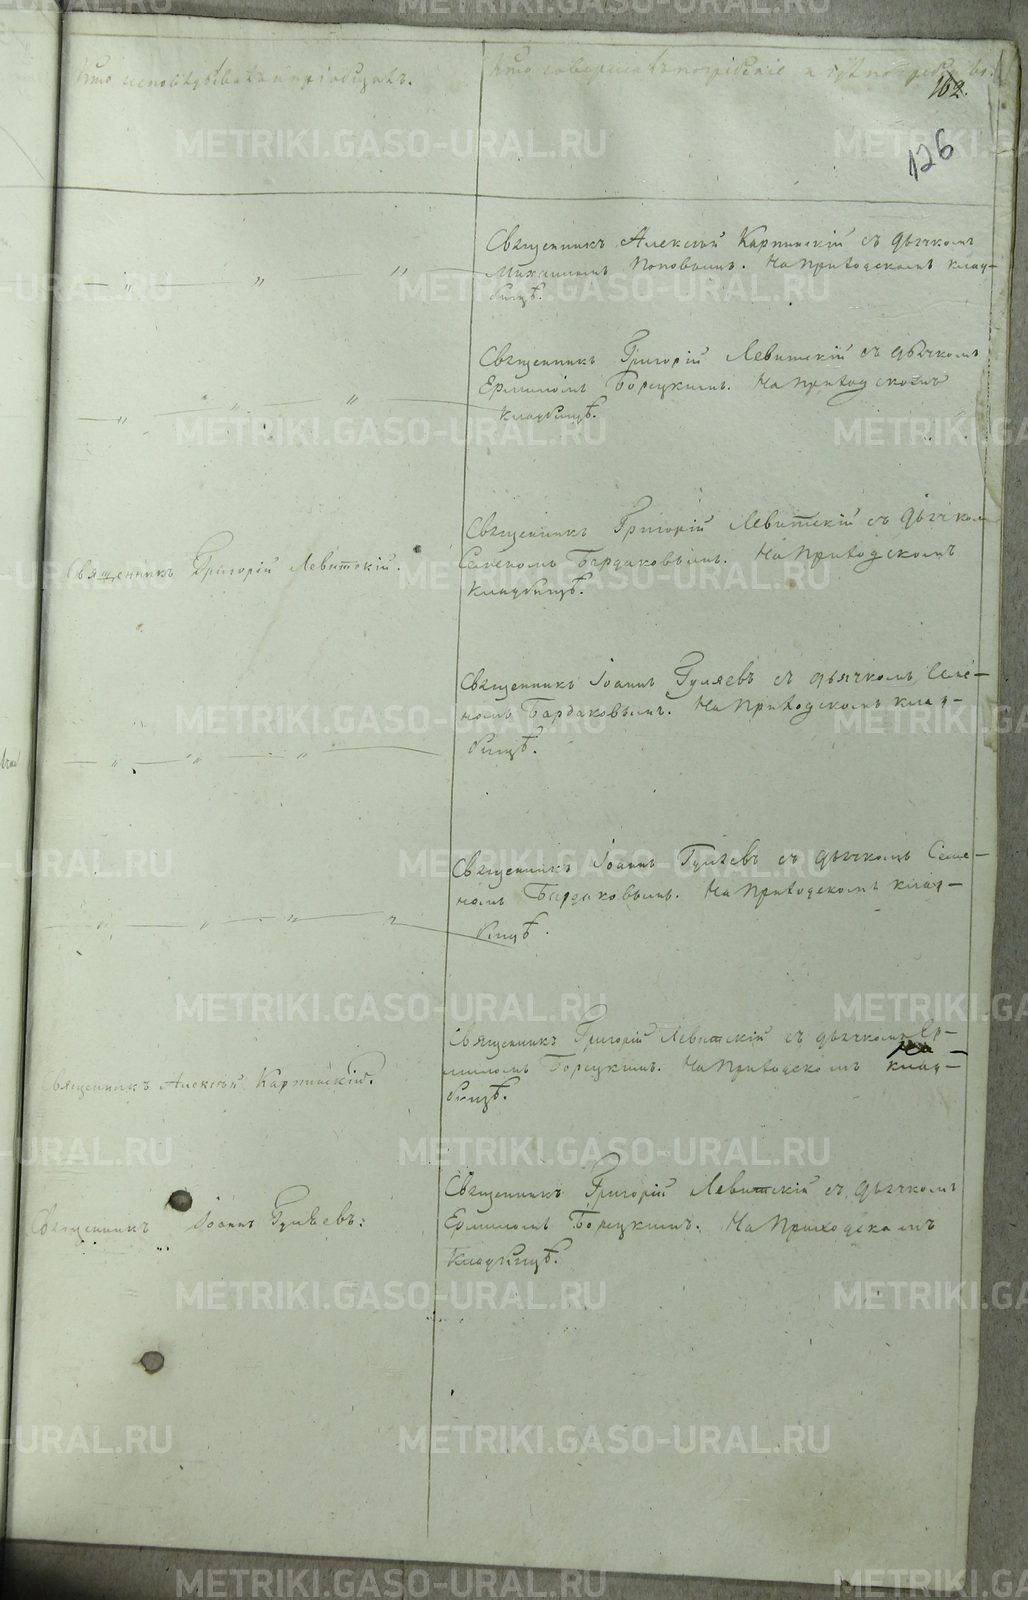 Кто исповѣдывалъ и пріобщалъ.
Кто совершалъ погребеніе и гдѣ погребены.
162.
126
Священникъ Алексѣй Карпинскій съ дьячкомъ
Михаиломъ Поповымъ. На приходскомъ клад-
бищѣ.
— „ — „ — „ —
Священникъ Григорій Левитскій съ дьячкомъ
Ермиломъ Борецкимъ. На приходскомъ
кладбищѣ.
— „ — „ — „ —
Священникъ Григорій Левитскій съ дьячком
Семеномъ Бардаковымъ. На приходскомъ
кладбищѣ.
Священникъ Григорій Левитскій.
Священникъ Іоаннъ Гуляевъ съ дьячкомъ Семе-
номъ Бардаковымъ. На приходскомъ клад-
бищѣ.
— „ — „ — „ —
Священникъ Іоаннъ Гуляевъ съ дьячкомъ Семе-
номъ Бардаковымъ. На приходскомъ клад-
бищѣ.
— „ — „ — „ — „ —
Священникъ Григорій Левитскій съ дьячкомъ Ер-
миломъ Борецкимъ. На приходскомъ клад-
бищѣ.
Священникъ Алексѣй Карпинскій.
Священникъ Григорій Левитскій съ дьячкомъ
Ермиломъ Борецкимъ. На приходскомъ
кладбищѣ.
Священникъ Іоаннъ Гуляевъ.
METRIKI.GASO-URAL.RU